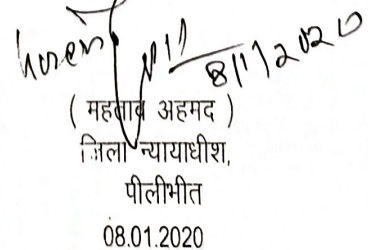 8/1/2020
( महताब अहमद )
जिला न्यायाधीश,
पीलीभीत
08.01.2020